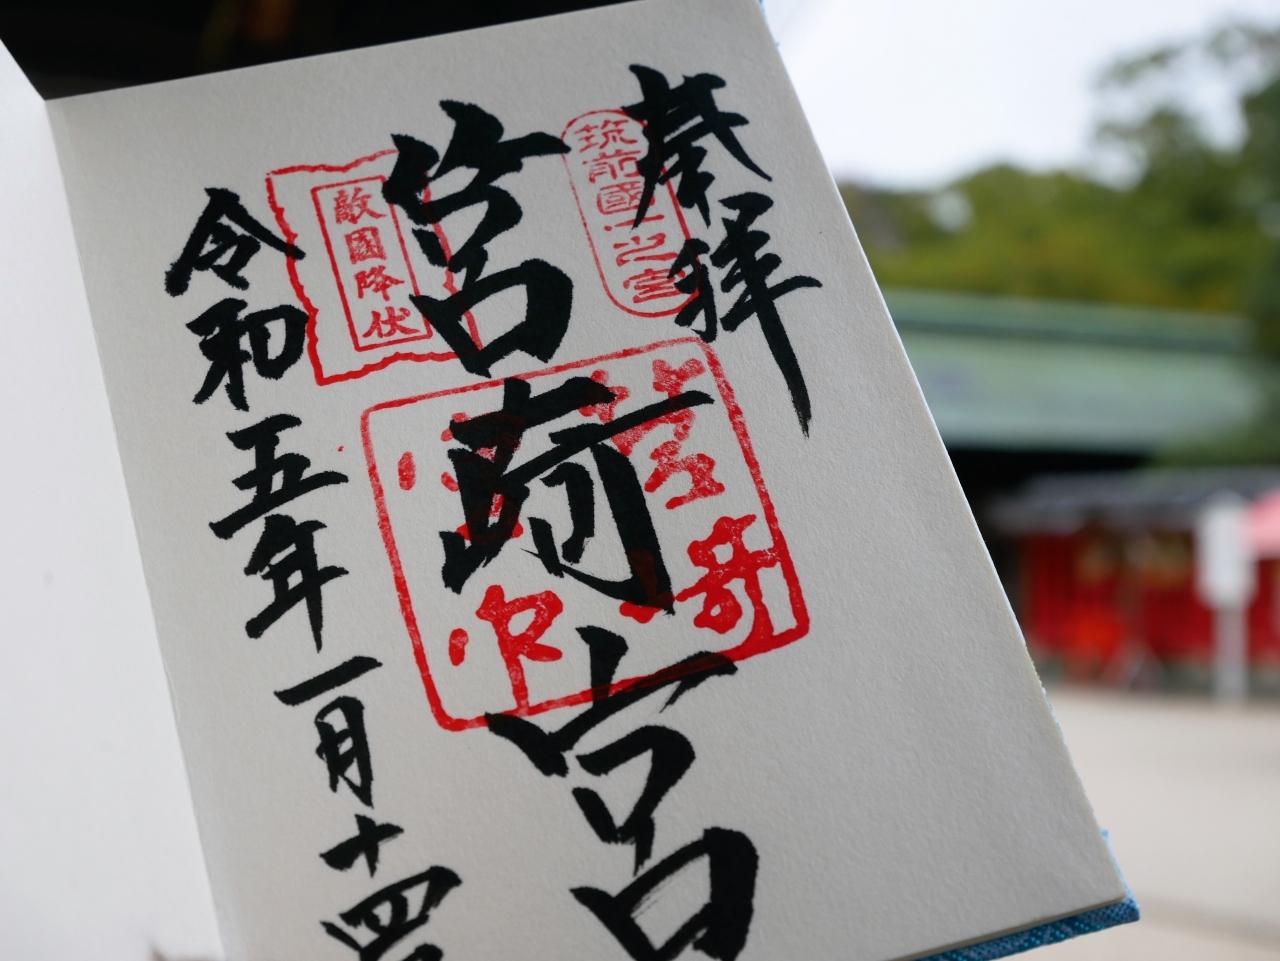 奉拝
筑前國一之宮
筥崎宮
敵國降伏
筥崎
令和五年一月十四